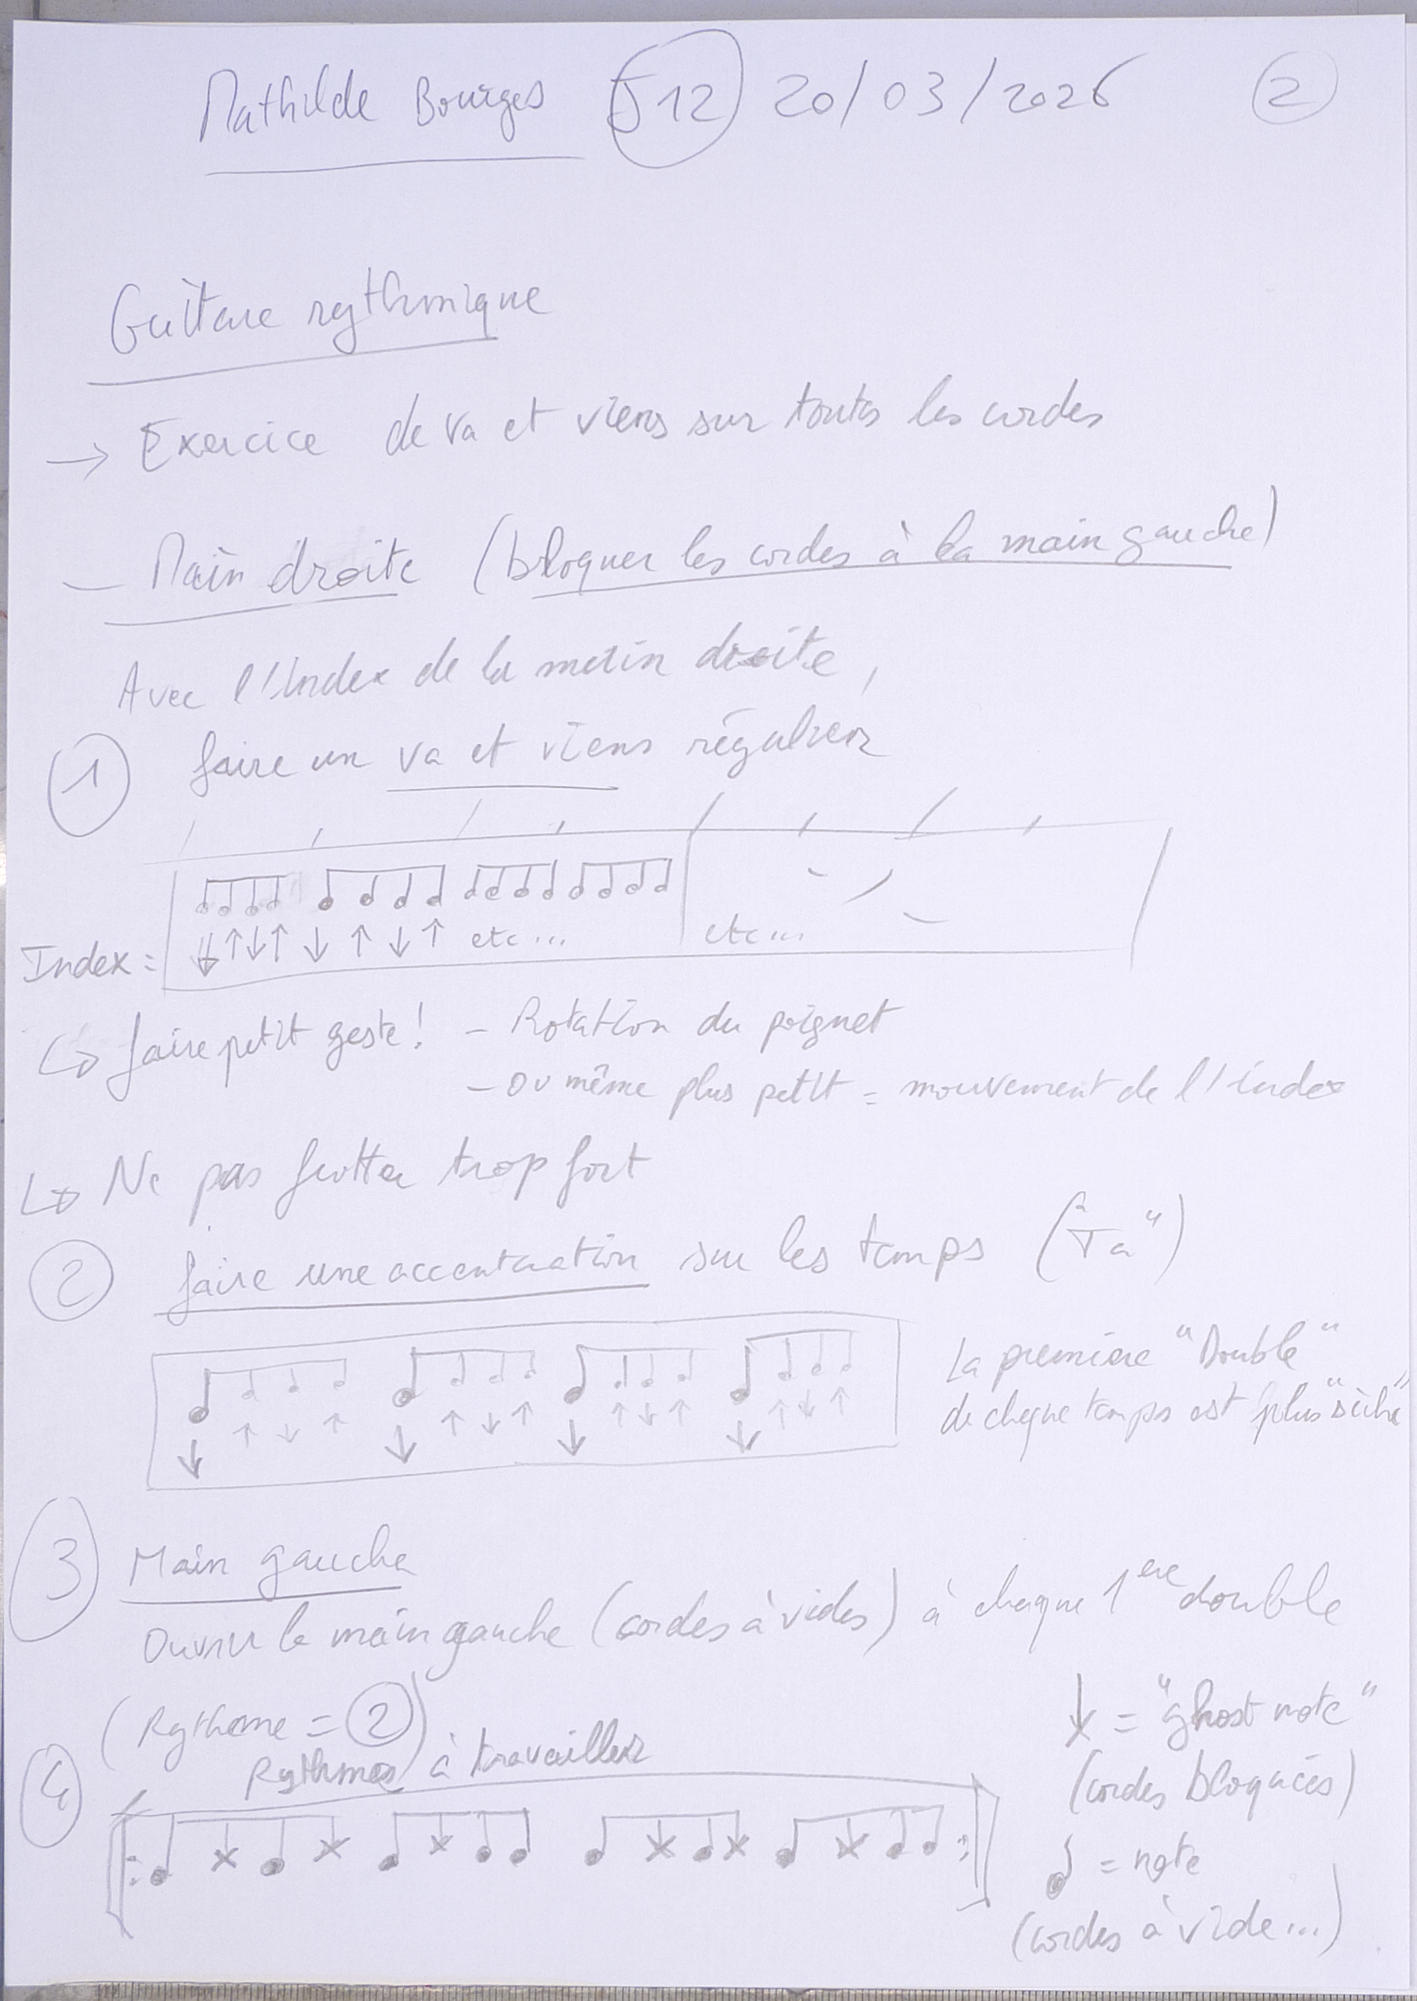 Mathilde Bourges J12 20/03/2026 2
Guitare rythmique
→ Exercice de va et viens sur toutes les cordes
– Main droite (bloquer les cordes à la main gauche)
Avec l'Index de la main droite,
1 faire un va et viens régulier
Index = ↓↑↓↑ ↓ ↑ ↓ ↑ etc... etc...
↳ faire petit geste! – Rotation du poignet
– ou même plus petit = mouvement de l'index
↳ Ne pas frotter trop fort
2 faire une accentuation sur les temps ("Ta")
La première "Double"
de chaque temps est plus "sèche"
↓ ↑ ↓ ↑ ↓ ↑ ↓ ↑ ↓ ↑ ↓ ↑ ↓ ↑ ↓ ↑
3 Main gauche
Ouvrir la main gauche (cordes à vides) à chaque 1ere double
(Rythme = 2)
4 Rythmes à travailler
= "ghost note"
(cordes bloquées)
♪ = note
(cordes à vide...)